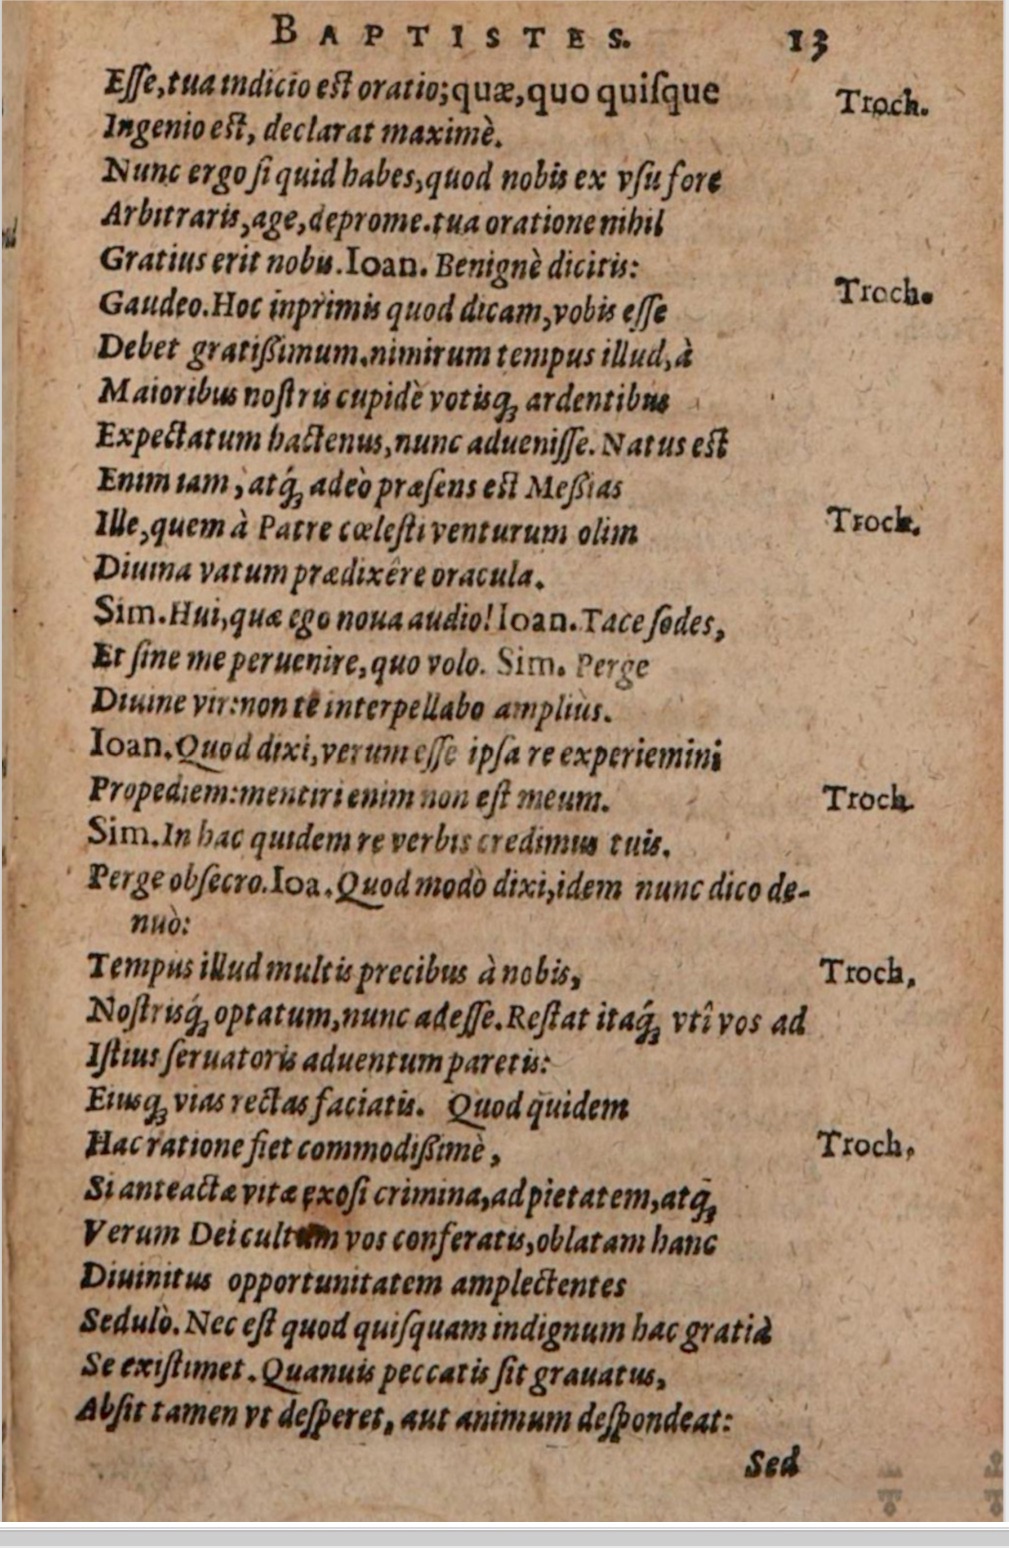 BAPTISTES. 13
Esse, tua indicio est oratio; quæ, quo quisque Troch.
Ingenio est, declarat maximè.
Nunc ergo si quid habes, quod nobis ex vsu fore
Arbitraris, age, deprome. tua oratione nihil
Gratius erit nobis. Ioan. Benignè dicitis:
Gaudeo. Hoc inprimis quod dicam, vobis esse Troch.
Debet gratissimum. nimirum tempus illud, à
Maioribus nostris cupidè votisq; ardentibus
Expectatum hactenus, nunc aduenisse. Natus est
Enim iam, atq́; adeò præsens est Messias
Ille, quem à Patre cœlesti venturum olim Troch.
Diuina vatum prædixêre oracula.
Sim. Hui, quæ ego noua audio! Ioan. Tace sodes,
Et sine me peruenire, quo volo. Sim. Perge
Diuine vir: non te interpellabo ampliùs.
Ioan. Quod dixi, verum esse ipsa re experiemini
Propediem: mentiri enim non est meum. Troch.
Sim. In hac quidem re verbis credimus tuis.
Perge obsecro. Ioa. Quod modò dixi, idem nunc dico de-
nuò:
Tempus illud multis precibus à nobis, Troch,
Nostrisq́; optatum, nunc adesse. Restat itaq́; vtî vos ad
Istius seruatoris aduentum paretis:
Eiusq; vias rectas faciatis. Quod quidem
Hac ratione fiet commodissimè, Troch,
Si anteactæ vitæ exosi crimina, ad pietatem, atq́;
Verum Dei cultum vos conferatis, oblatam hanc
Diuinitus opportunitatem amplectentes
Sedulò. Nec est quod quisquam indignum hac gratià
Se existimet. Quanuis peccatis sit grauatus,
Absit tamen vt desperet, aut animum despondeat:
Sed